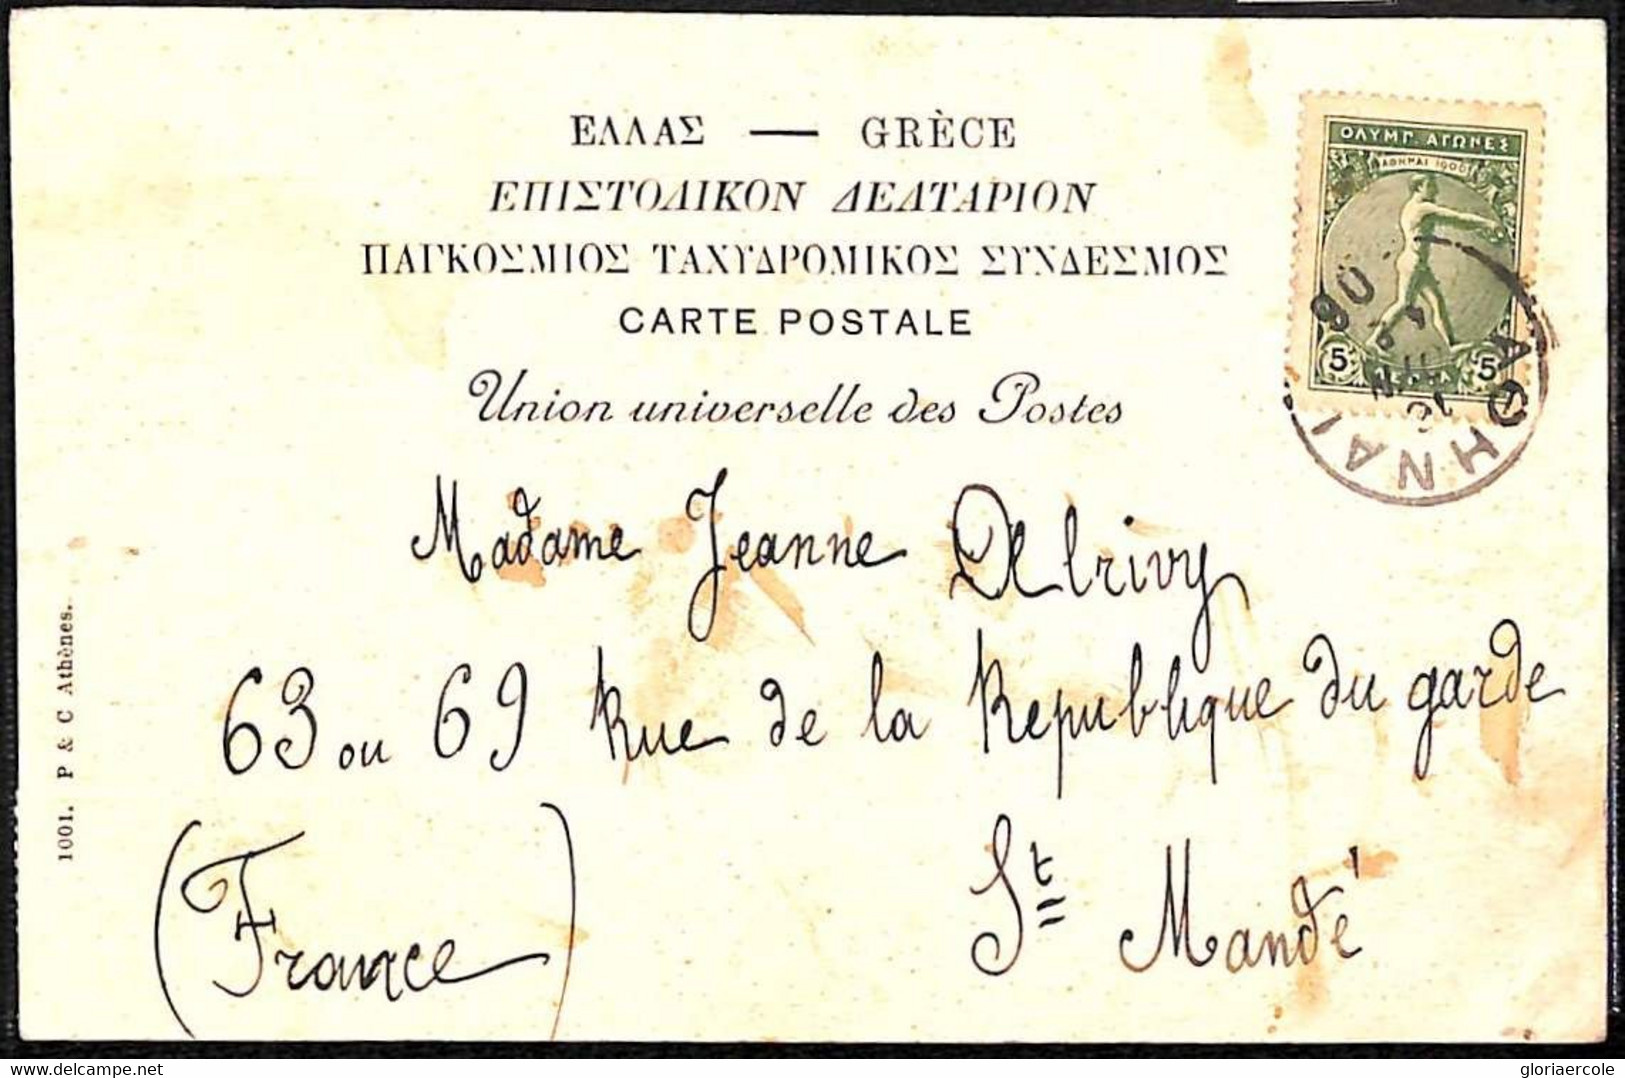 ΕΛΛΑΣ — GRÈCE
ΕΠΙΣΤΟΛΙΚΟΝ ΔΕΛΤΑΡΙΟΝ
ΠΑΓΚΟΣΜΙΟΣ ΤΑΧΥΔΡΟΜΙΚΟΣ ΣΥΝΔΕΣΜΟΣ
CARTE POSTALE
Union universelle des Postes
ΟΛΥΜΠ. ΑΓΩΝΕΣ
ΑΘΗΝΑΙ 1906
5 ΛΕΠΤΑ 5
ΑΘΗΝΑΙ
06
Madame Jeanne Alrivy
63 ou 69 Rue de la Republique du garde
St Mandé
(France)
1001. P & C Athènes.
delcampe.net
gloriaercole